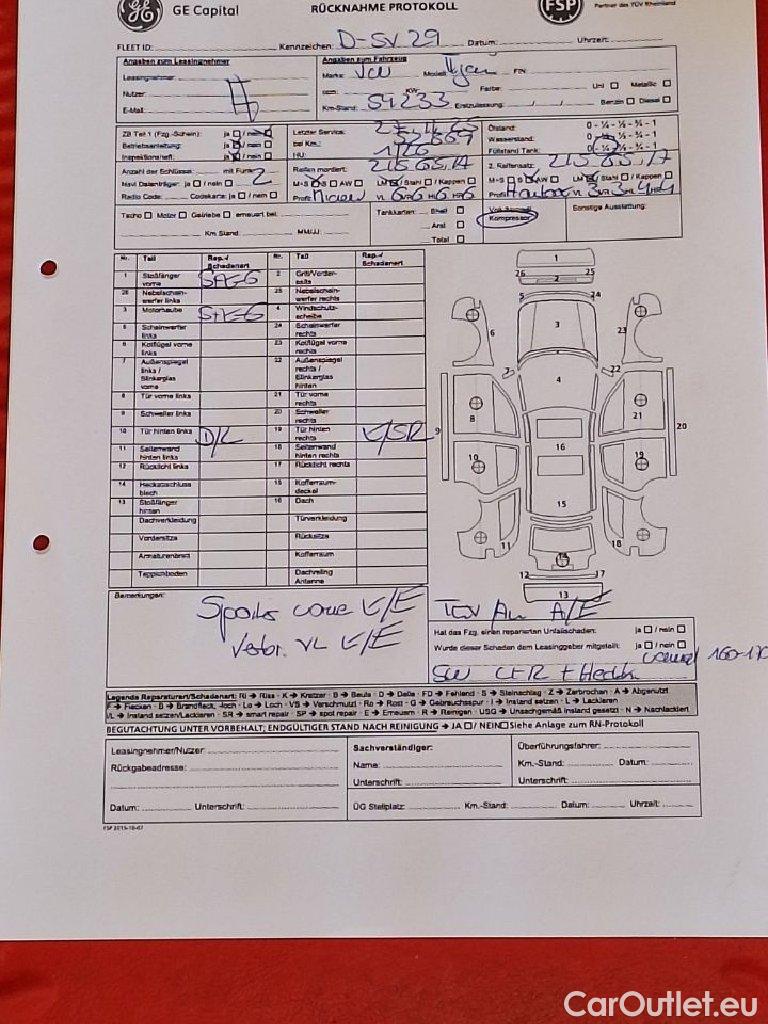 GE Capital
RÜCKNAHME PROTOKOLL
FSP
Partner des TÜV Rheinland
FLEET ID: Kennzeichen: D-SV 29 Datum: Uhrzeit:
Angaben zum Leasingnehmer
Leasingnehmer:
Nutzer:
E-Mail:
Angaben zum Fahrzeug
Marke: VW Modell: FIN
ccm: KW: Farbe: Uni Metallic
Km-Stand: 54233 Erstzulassung: Benzin Diesel
ZB Teil 1 (Fzg.-Schein): ja / nein
Betriebsanleitung: ja / nein
Inspektionsheft: ja / nein
Letzter Service:
bei Km.:
HU:
Ölstand: 0 - ¼ - ½ - ¾ - 1
Wasserstand: 0 - ¼ - ½ - ¾ - 1
Füllstand Tank: 0 - ¼ - ½ - ¾ - 1
Anzahl der Schlüssel: mit Funk: 2
Navi Datenträger: ja / nein
Radio Code: Codekarte: ja / nein
Reifen montiert: 215 65 17
M+S S AW LM / Stahl / Kappen
Profil
2. Reifensatz: 215 65 17
M+S S AW LM / Stahl / Kappen
Profil
Tacho Motor Getriebe erneuert bei
Km. Stand MM/JJ:
Tankkarten: Shell
Aral
Total
Kompressor
Sonstige Ausstattung:
Nr. Teil Rep./Schadenart Nr. Teil Rep./Schadenart
1 Stoßfänger vorne 2 Grill/Vorderseite
26 Nebelscheinwerfer links 25 Nebelscheinwerfer rechts
3 Motorhaube 4 Windschutzscheibe
5 Scheinwerfer links 24 Scheinwerfer rechts
6 Kotflügel vorne links 23 Kotflügel vorne rechts
7 Außenspiegel links / Blinkerglas vorne 22 Außenspiegel rechts / Blinkerglas hinten
8 Tür vorne links 21 Tür vorne rechts
9 Schweller links 20 Schweller rechts
10 Tür hinten links D/L 19 Tür hinten rechts K/SR
11 Seitenwand hinten links 18 Seitenwand hinten rechts
12 Rücklicht links 17 Rücklicht rechts
14 Heckabschlussblech 15 Kofferraumdeckel
13 Stoßfänger hinten 16 Dach
Dachverkleidung Türverkleidung
Vordersitze Rücksitze
Armaturenbrett Kofferraum
Teppichboden Dachreling Antenne
1
26 2 25
5 24
6 3 23
7 22
4
8 21
9 20
16
10 19
15
11 14 18
12 17
13
Bemerkungen:
Spoiler vorne K/E
VL K/E
A/E
Hat das Fzg. einen reparierten Unfallschaden: ja / nein
Wurde dieser Schaden dem Leasinggeber mitgeteilt: ja / nein
Legende Reparaturart/Schadenart: RI → Riss - K → Kratzer - B → Beule - D → Delle - FD → Fehlend - S → Steinschlag - Z → Zerbrochen - A → Abgenutzt
F → Flecken - B → Brandfleck, -loch - Lo → Loch - VS → Verschmutzt - Ro → Rost - G → Gebrauchsspur - I → Instand setzen - L → Lackieren
I/L → Instand setzen/Lackieren - SR → smart repair - SP → spot repair - E → Erneuern - R → Reinigen - USG → Unsachgemäß instand gesetzt - N → Nachlackiert
BEGUTACHTUNG UNTER VORBEHALT; ENDGÜLTIGER STAND NACH REINIGUNG → JA / NEIN Siehe Anlage zum RN-Protokoll
Leasingnehmer/Nutzer:
Rückgabeadresse:
Datum: Unterschrift:
Sachverständiger:
Name:
Unterschrift:
Überführungsfahrer:
Km.-Stand: Datum:
Unterschrift:
ÜG Stellplatz: Km.-Stand: Datum: Uhrzeit:
CarOutlet.eu